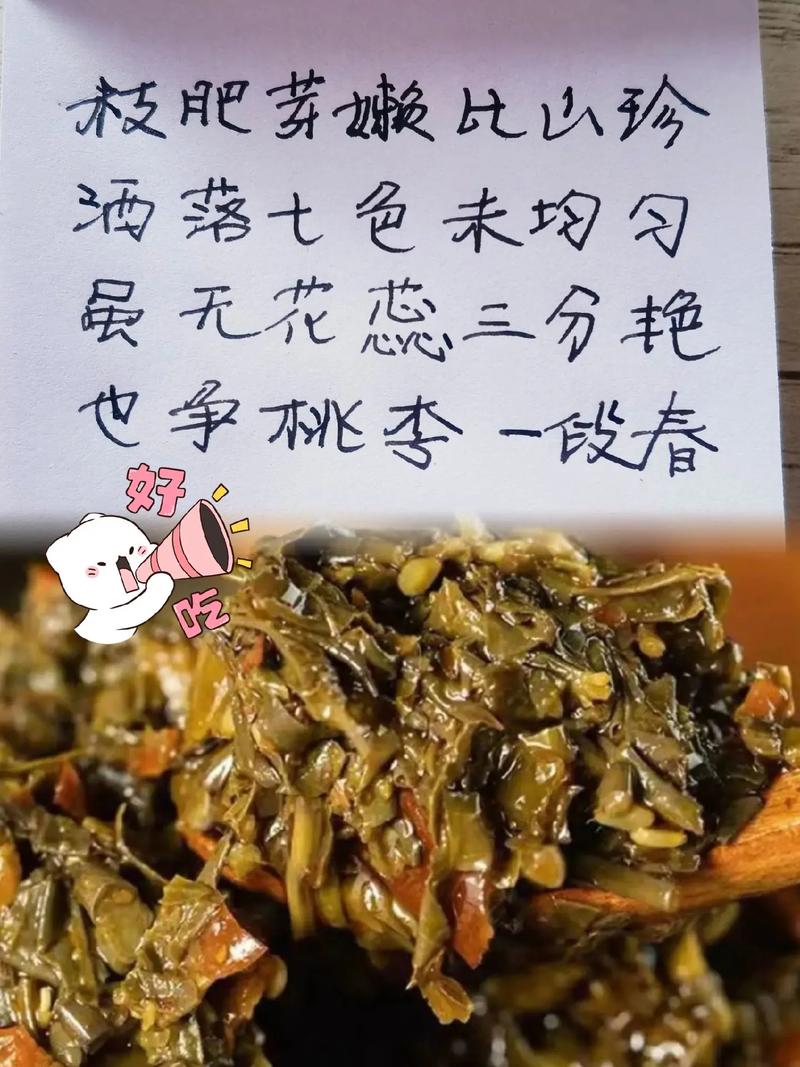 枝肥芽嫩比山珍
洒落七色未均匀
虽无花蕊三分艳
也争桃李一段春
好
吃